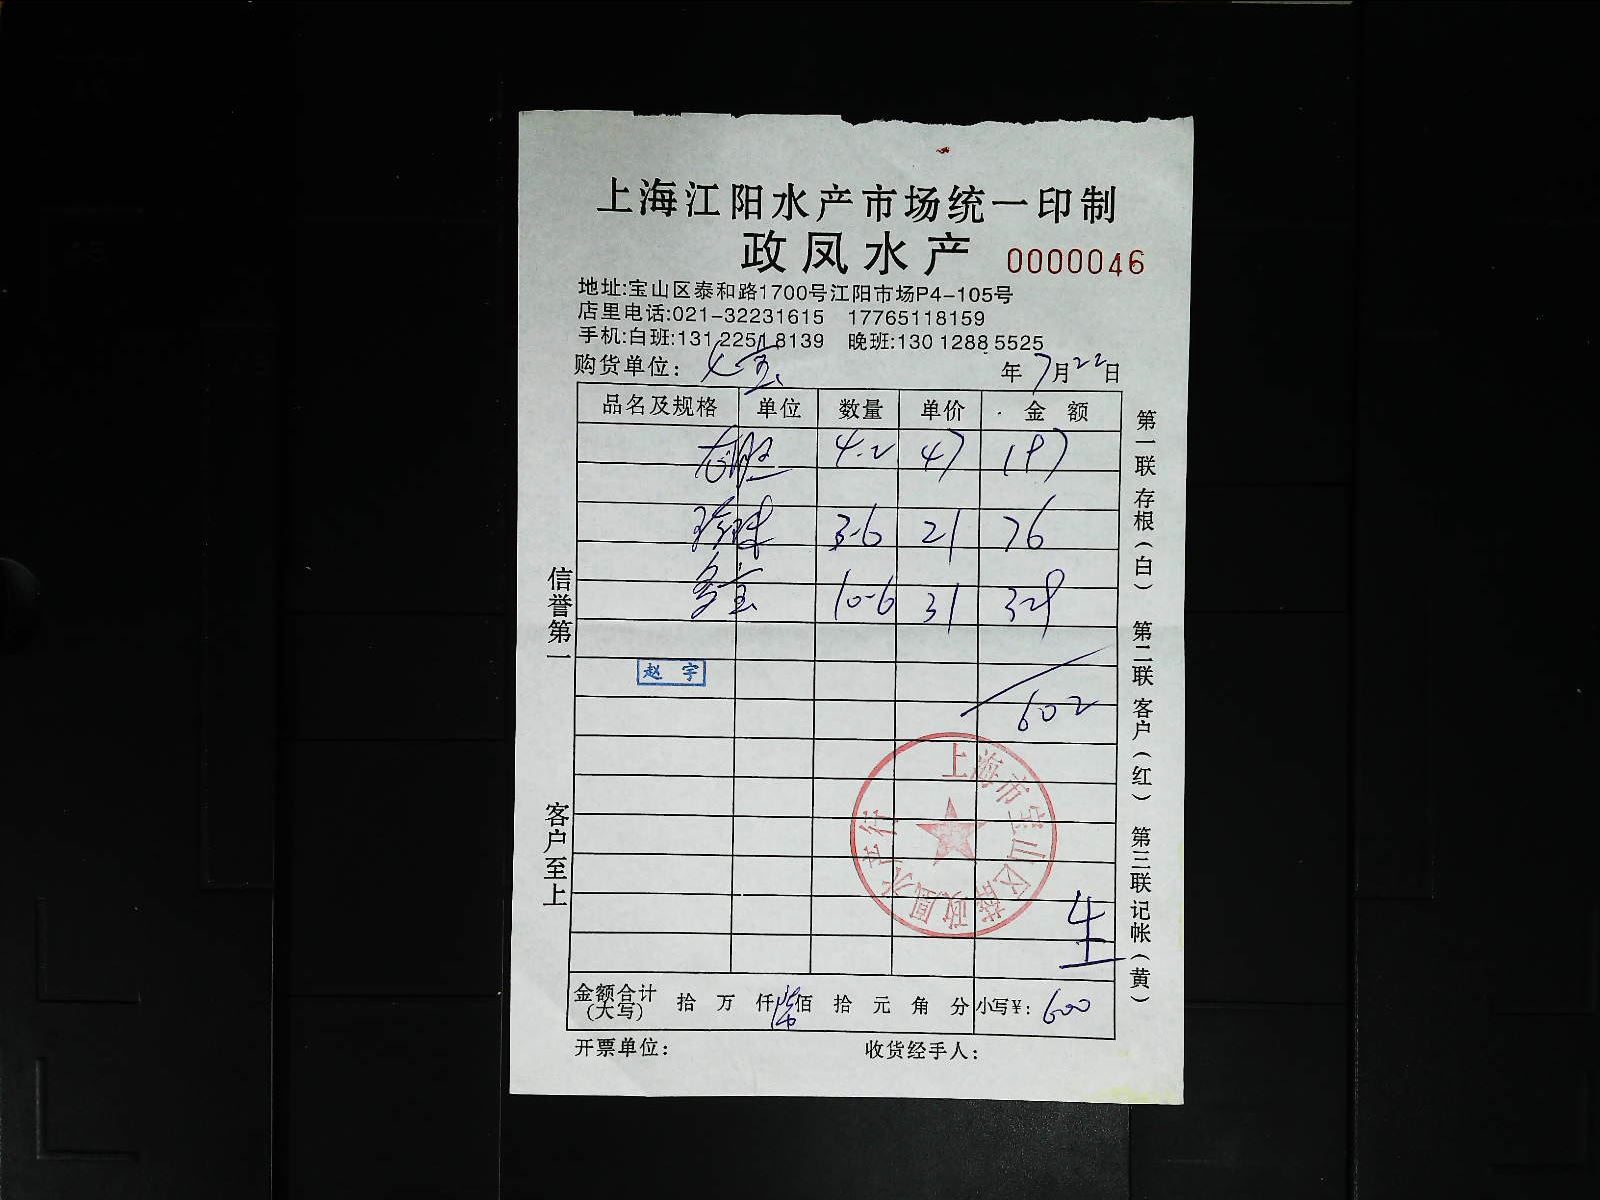 上海江阳水产市场统一印制
政凤水产 0000046
地址:宝山区泰和路1700号江阳市场P4-105号
店里电话:021-32231615 17765118159
手机:白班:131 2251 8139 晚班:130 1288 5525
购货单位: 七宝 年7月22日
品名及规格 单位 数量 单价 金额
4.2 47 197
珍珠 3.6 21 76
多宝 10.6 31 329
赵宇
602
上海市宝山区
政凤水产行
金额合计(大写) 拾 万 仟 陆佰 拾 元 角 分 小写¥: 600
开票单位: 收货经手人:
信誉第一
客户至上
第一联 存根(白) 第二联 客户(红) 第三联 记帐(黄)